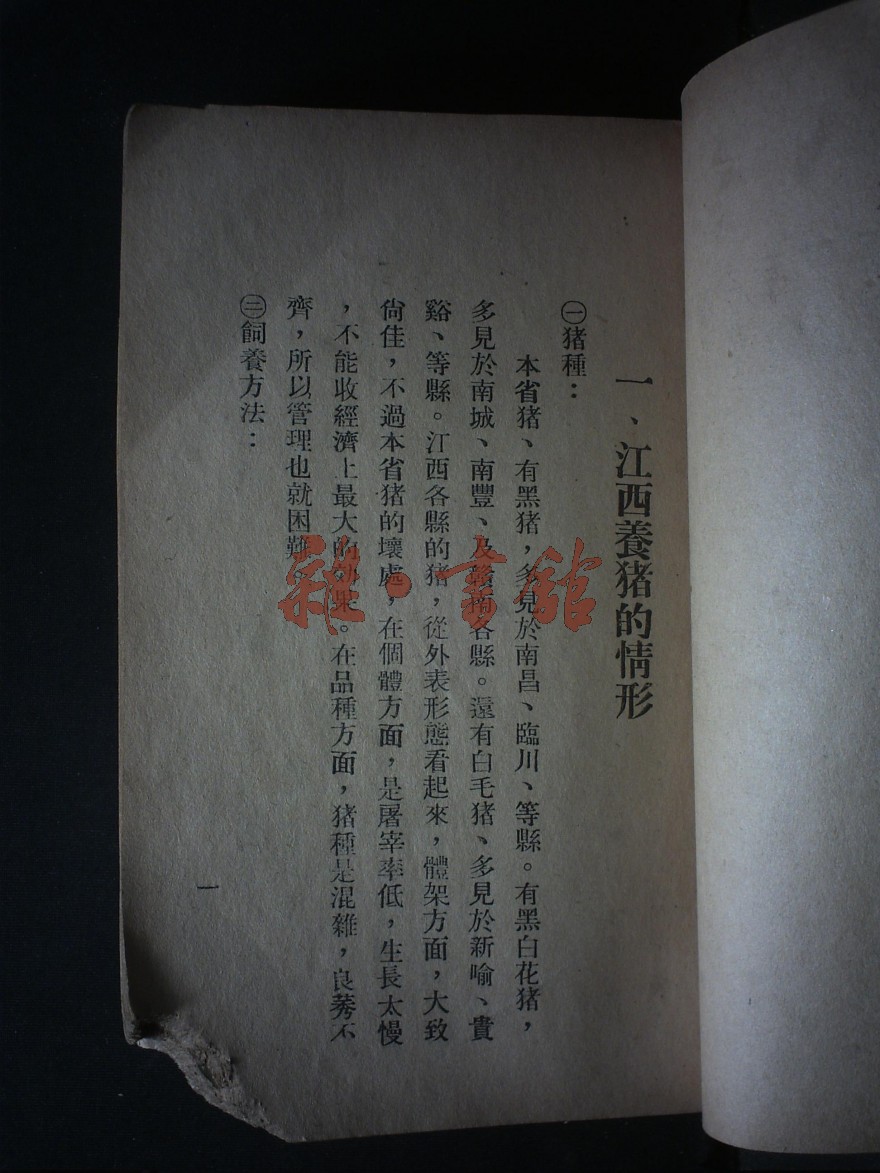 一、江西養猪的情形
㊀猪種：
本省猪、有黑猪，多見於南昌、臨川、等縣。有黑白花猪，
多見於南城、南豐、及贛南各縣。還有白毛猪、多見於新喻、貴
谿、等縣。江西各縣的猪，從外表形態看起來，體架方面，大致
尙佳，不過本省猪的壞處，在個體方面，是屠宰率低，生長太慢
，不能收經濟上最大的効果。在品種方面，猪種是混雜，良莠不
齊，所以管理也就困難。
㊁飼養方法：
一
雜·書館